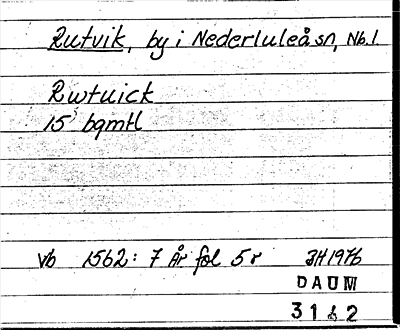 Rutvik, by i Nederluleå sn, Nb.l.
Rwtuick
15 bqmtl
Vb 1562: 7 År fol 5 r BH1976
DAUM
3142